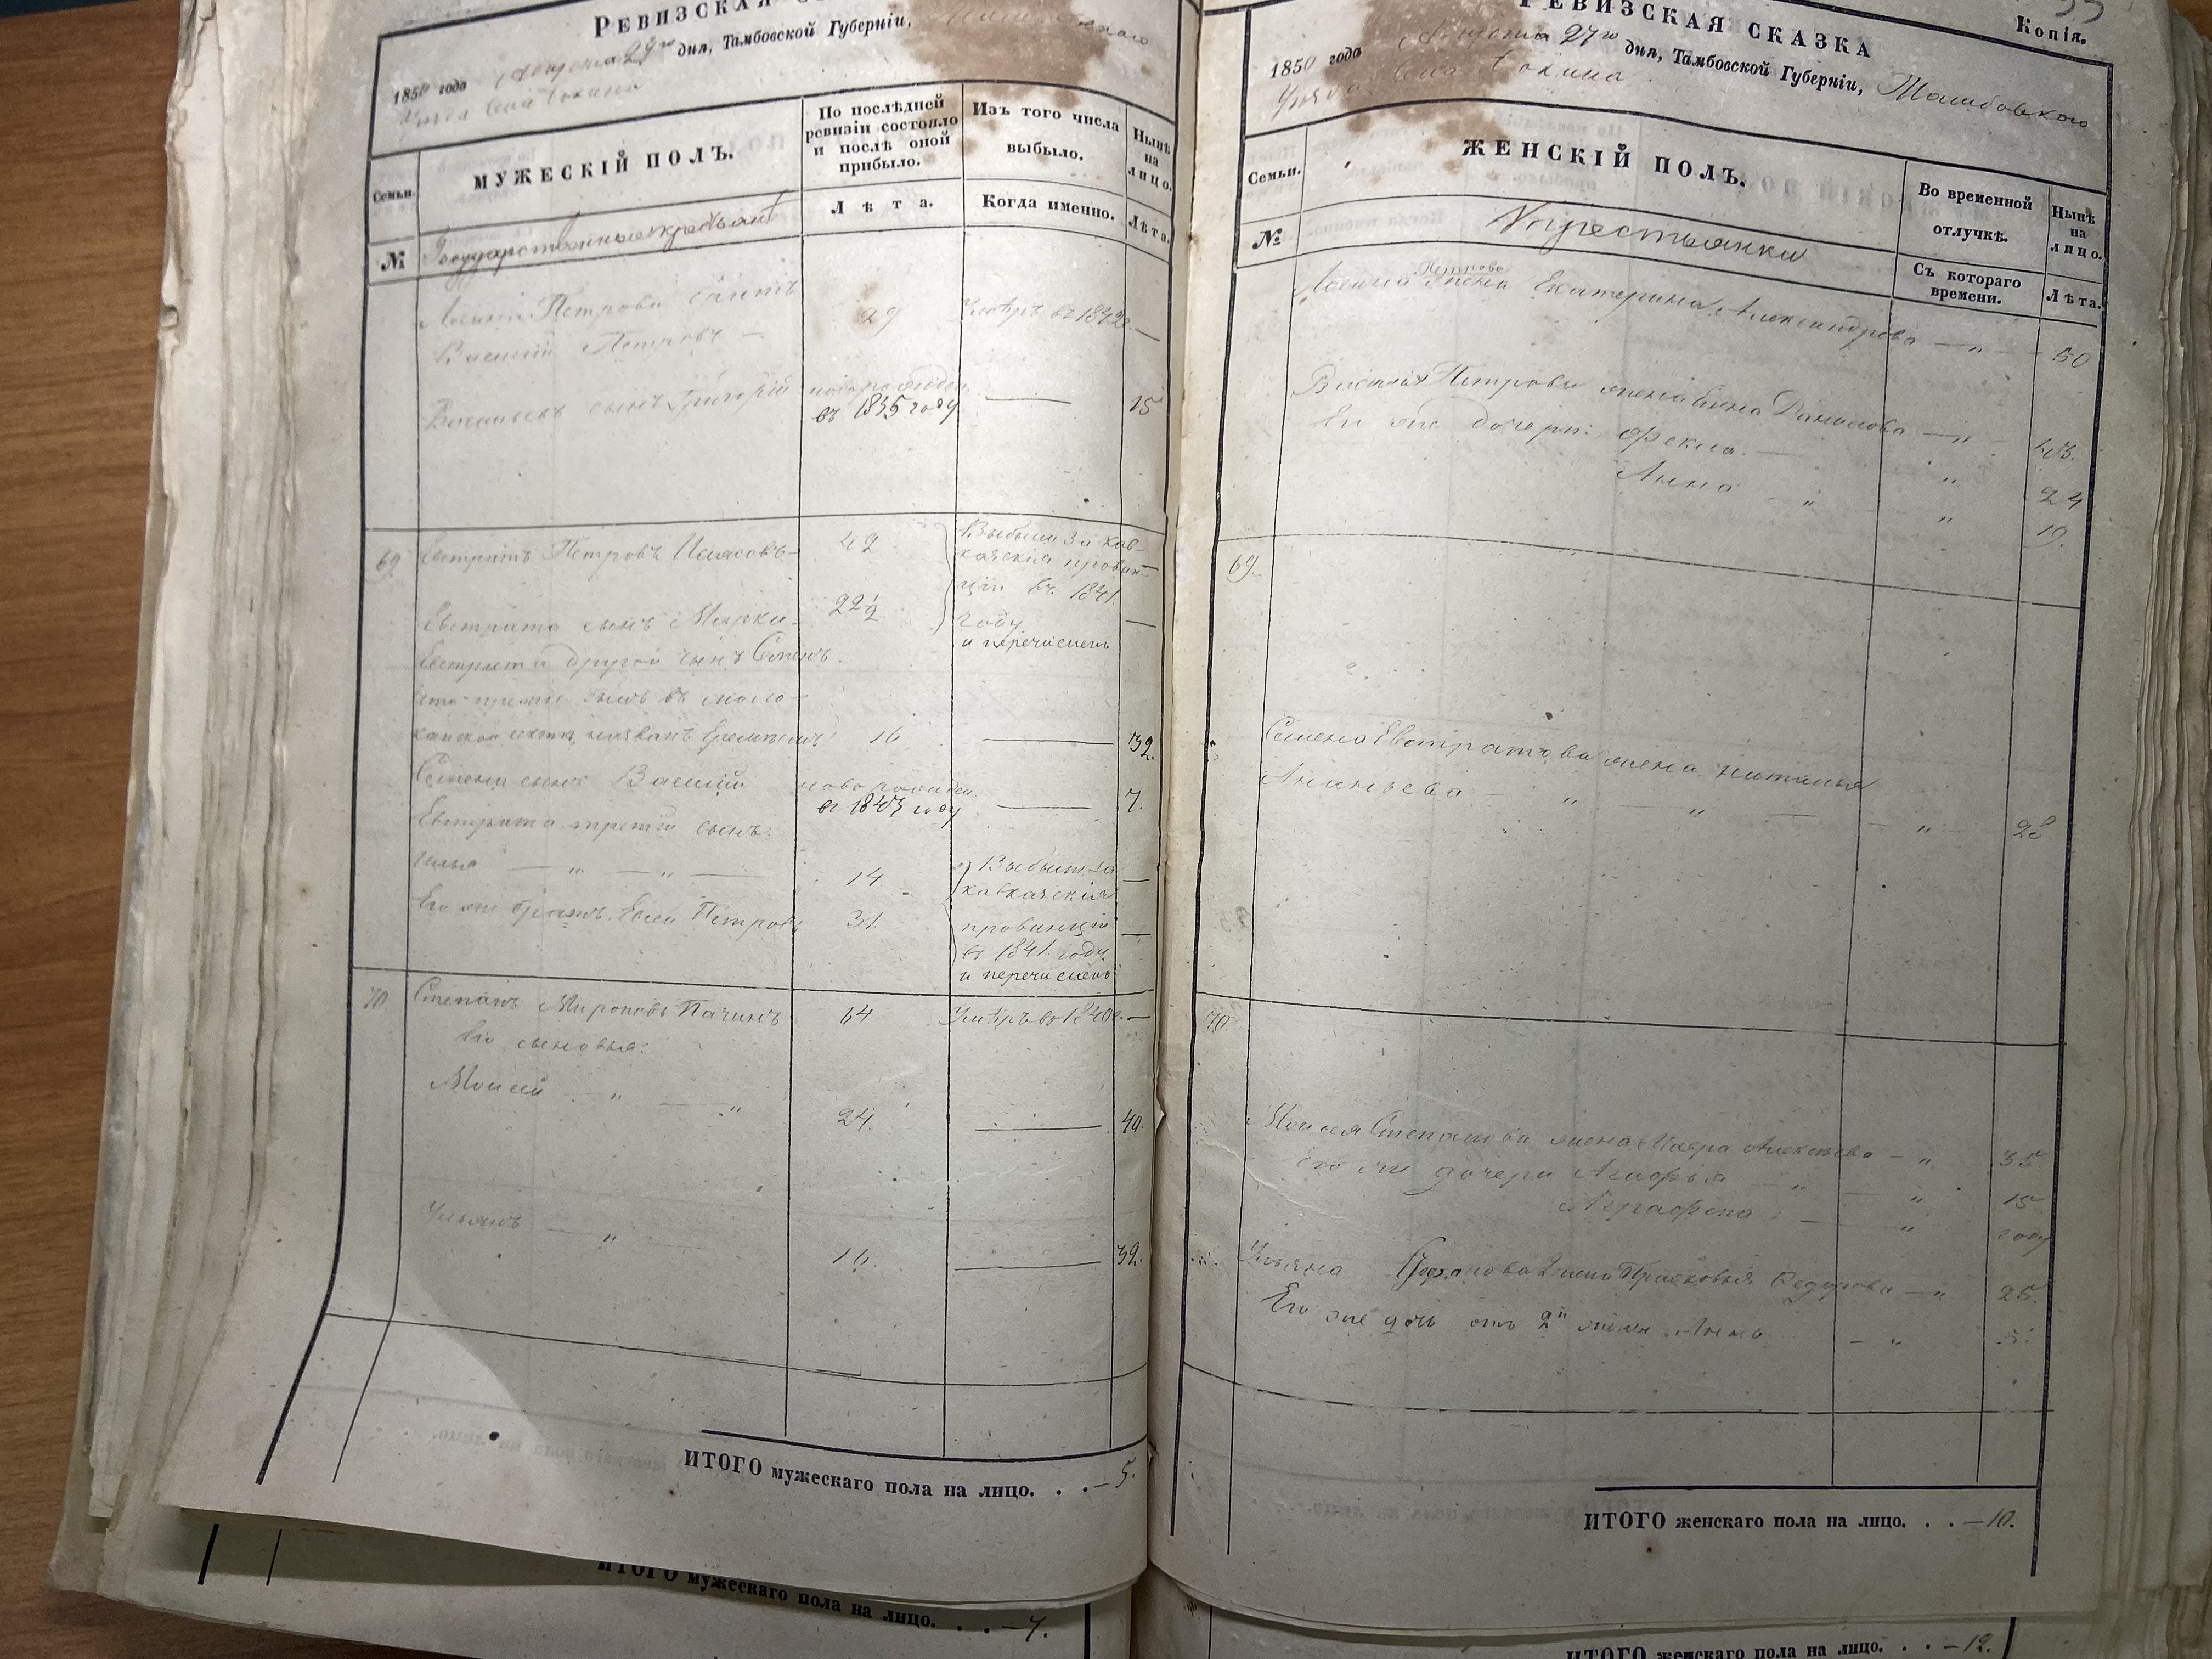 РЕВИЗСКАЯ
1850 года Августа 27го дня, Тамбовской Губерніи,
Уѣзда Села
Семьи.
МУЖЕСКІЙ ПОЛЪ.
По послѣдней ревизіи состояло и послѣ оной прибыло.
Изъ того числа выбыло.
Нынѣ на лицо.
№
Государственные крестьяне
Лѣта.
Когда именно.
Лѣта.
Петрова сынъ 29 Умеръ въ 1842 —
Василій Петровъ —
Васильевъ сынъ Григорій новорожден. въ 1835 году — 15
69 Евстратъ Петровъ 42 Выбыли за кав-
казскія провин-
ціи въ 1841
Евстрата сынъ 22½ году —
и перечислен
Евстрата другой сынъ Семенъ.
что прежде былъ въ моло-
канской сектѣ, названъ 16 — 32.
Семена сынъ Василій новорожден.
въ 1843 году — 7.
Евстрата третій сынъ
Илья — " — " — 14 Выбыт за —
кавказскія
Его же братъ Евсей Петровъ 31 провинціи —
въ 1841 году
и перечислен
70 Степанъ Мироновъ 64 Умеръ въ 1840 —
Его сыновья:
Моисей — " — " 24. — 40.
Ульянъ — " — 16. — 32.
ИТОГО мужескаго пола на лицо. . . — 5.
ИТОГО мужескаго пола на лицо. . . — 7.
РЕВИЗСКАЯ СКАЗКА
Копія.
1850 года Августа 27го дня, Тамбовской Губерніи, Тамбовского
Уѣзда Села
Семьи.
ЖЕНСКІЙ ПОЛЪ.
Во временной отлучкѣ.
Нынѣ на лицо.
№
Крестьянки
Съ котораго времени.
Лѣта.
Петрова
жена Екатерина Александрова — " — 50
Василья Петрова жена Данилова — "
Его же дочери: Фекла — " 24
Анна — " " 19.
69.
Семена Евстратова жена Наталья
Ананьева — " " — " 28
70
Моисея Степанова жена Мавра Алексѣева — " 35
Его же дочери Агафья " — " 15
Аграфена — " году
Ульяна Степанова 2 жена Прасковья Федорова — " 25.
Его же дочь отъ 2й жены Анна — "
ИТОГО женскаго пола на лицо. . . — 10.
ИТОГО женскаго пола на лицо. . . — 12.